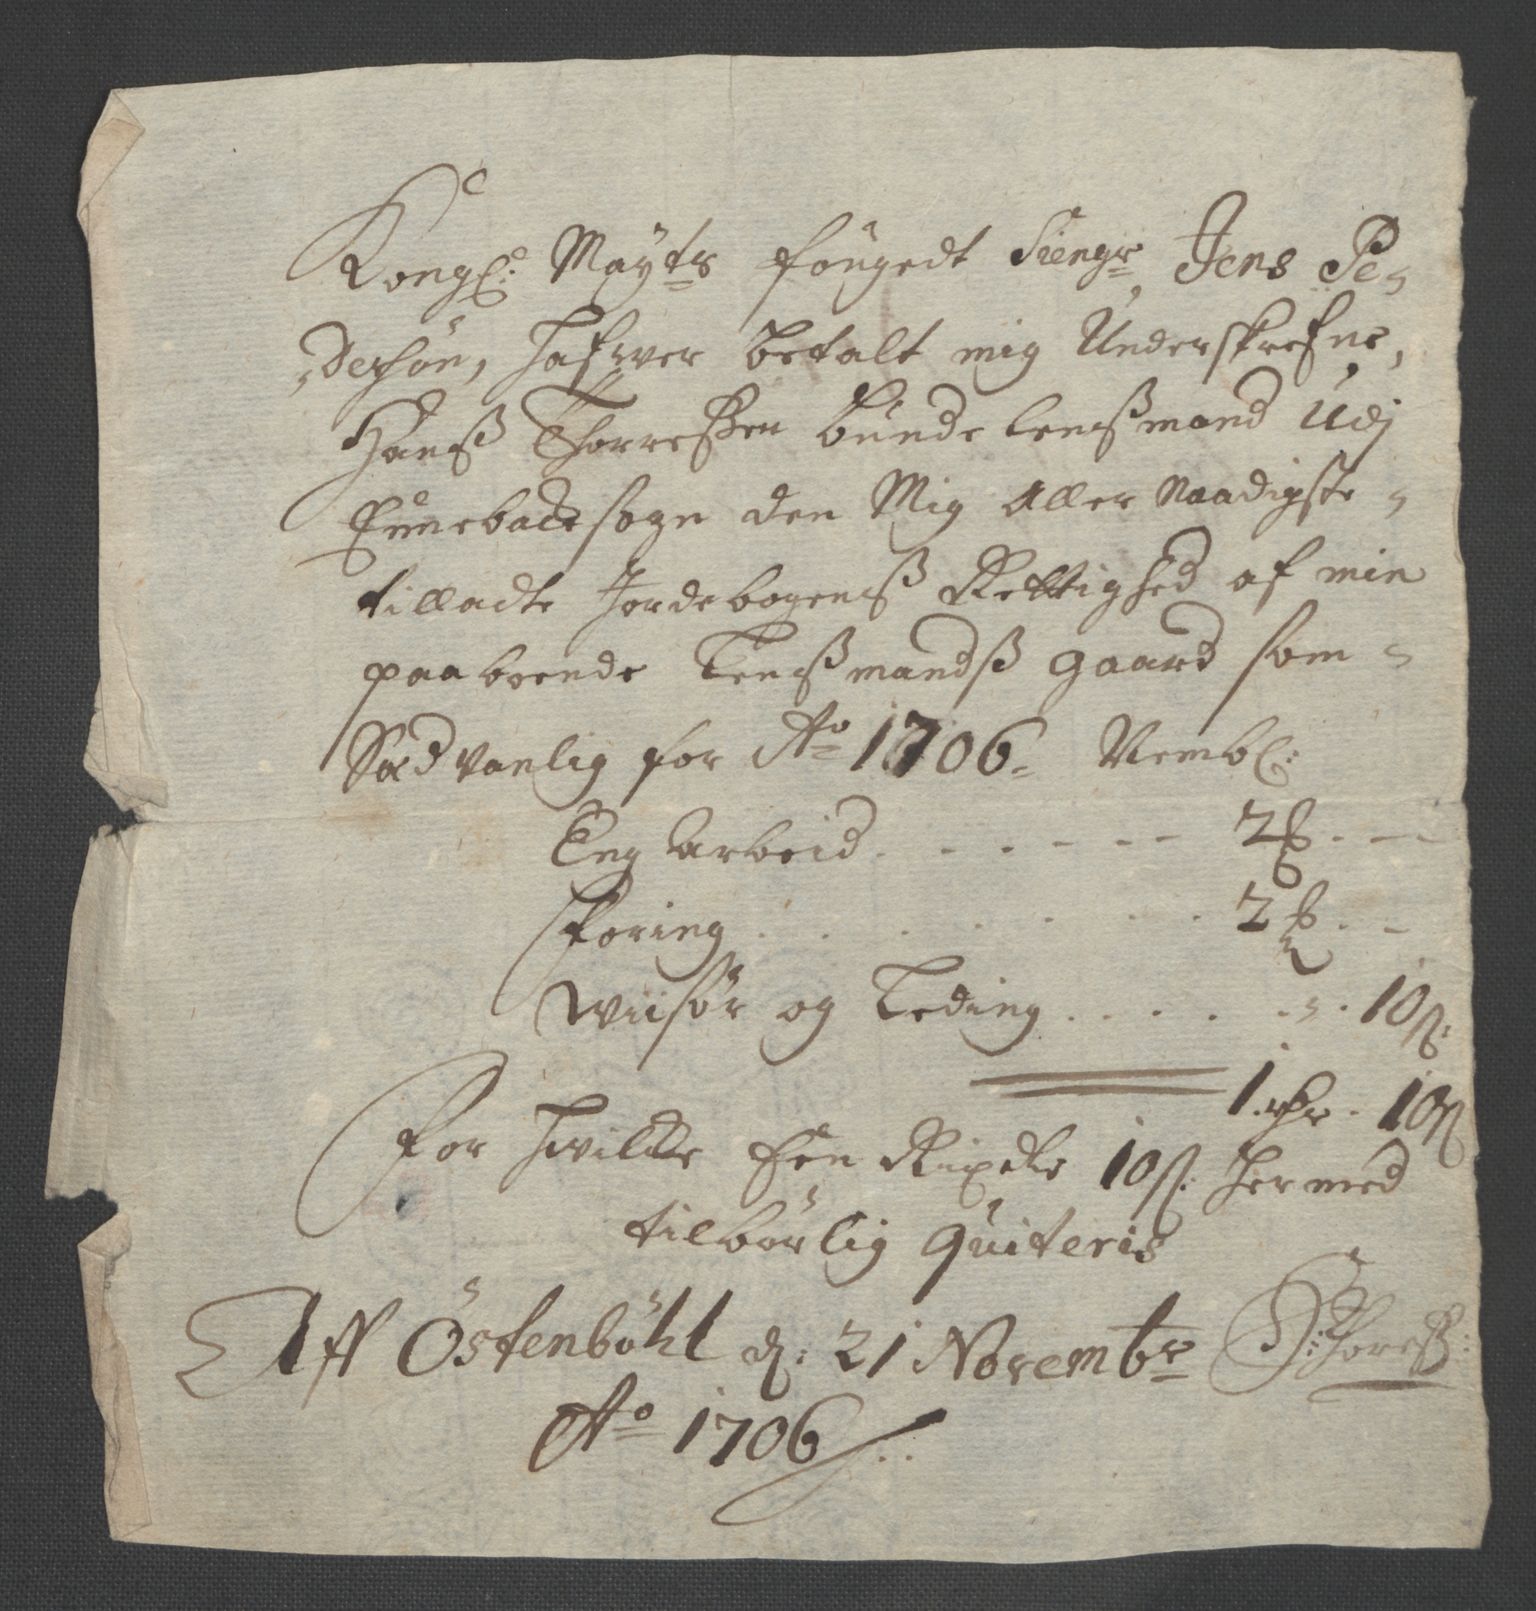 Kongl: Mayts fougedt Siengr Jens Pe-
dersøn, hafwer betalt mig Underskrefne,
Hanß Thorreßen bunde Lenßmand Udj
Ennebacksogn den Mig Aller Naadigste-
tilladte Jordebogenß Rettighed af min
paaboende Lenßmandß gaard som-
Sædvanlig for Ao 1706. Nembl:
Eng Arbeid . . . . - - - 2 ß. - -
fforing . . . . . . . 2 ß. -
Wiisør og Leding . . . . . - . 10 ß:
1 rdr. 10 ß
For hvilcke Een Rixdr 10 ß: hermed
tilbørlig quiteris
Aff Östenbøhl d: 21 Novembr H: Thoreß:
Ao 1706 /..